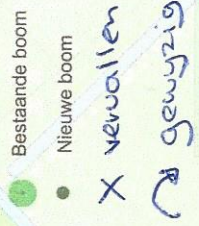 Bestaande boom
Nieuwe boom
X vervallen
gewijzig